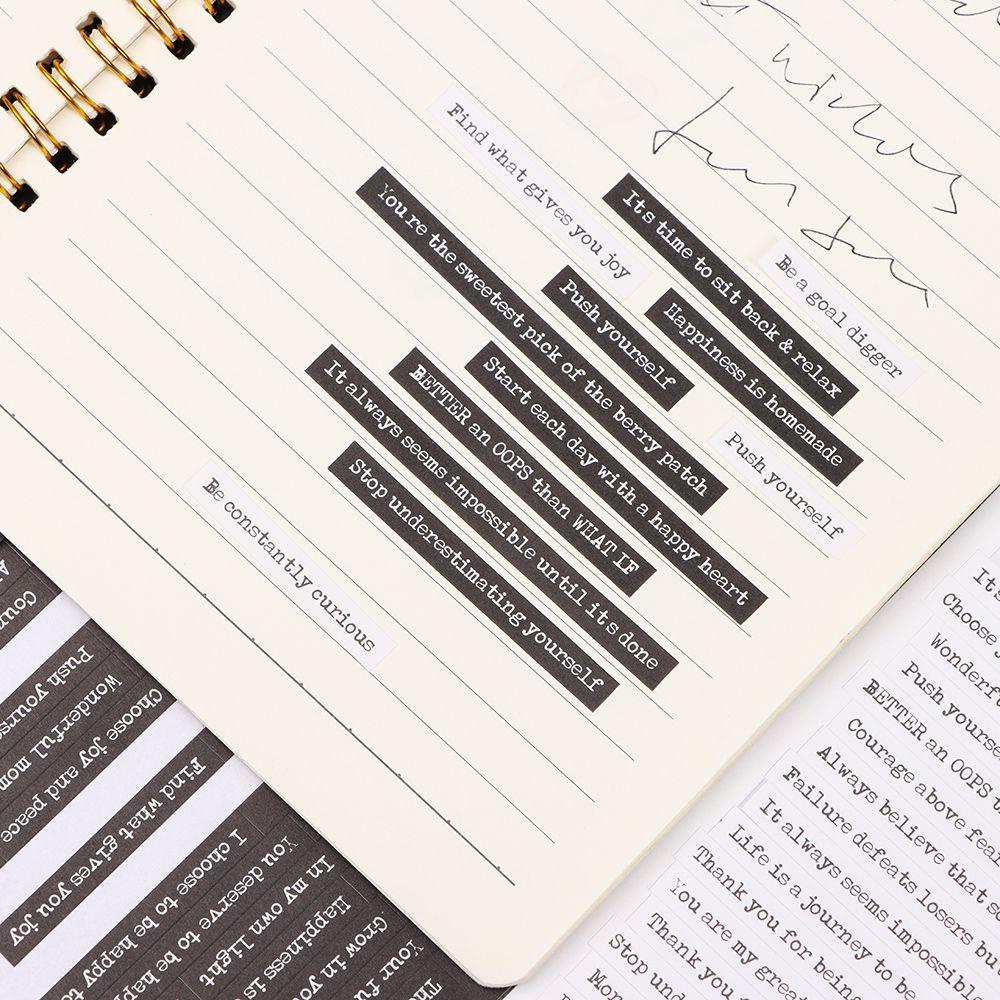 Find what gives you joy
You re the sweetest pick of the berry patch
It s time to sit back & relax
Be a goal digger
Push yourself
Happiness is homemade
Start each day with a happy heart
Push yourself
BETTER an OOPS than WHAT IF
It always seems impossible until it s done
Stop underestimating yourself
Be constantly curious
Coun
Push yourse
Wonderful mom
Choose joy and peace
Find what gives you joy
I choose to be happy
You deserve to be happy t
In my own light
Happiness is
Grow in yo
Your fu
Th
It s
Choose j
Wonderf
Push yourse
BETTER an OOPS t
Courage above fea
Always believe that s
Failure defeats losers but
It always seems impossible
Life is a journey to be
Thank you for being
You are my great
Thank you
Stop und
Mom